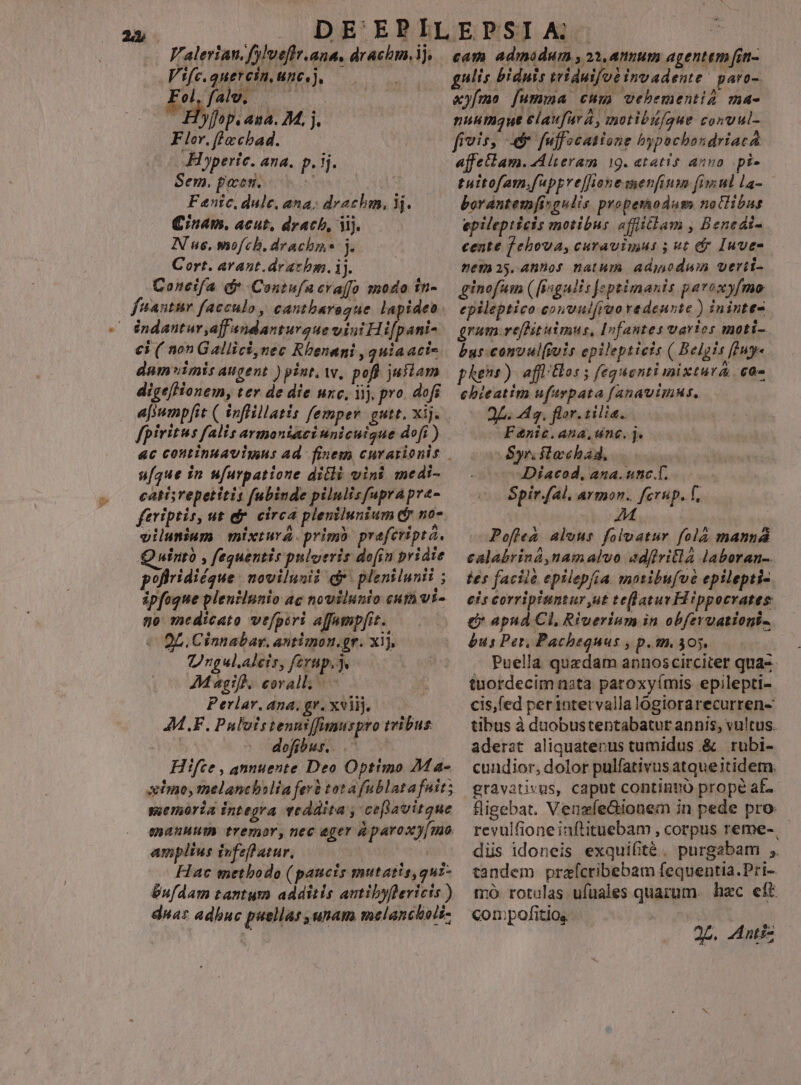 22 DE EPILEPSIA.
Valerian. sylvestr. ana. drachm. ij.
Visc. quercin. unc. j.
Fol. salv.
Hyssop. ana. M. j.
Flor. stœchad.
Hyperic. ana. p. ij.
Sem. pœon.
Fœnic. dulc. ana. drachm. ij.
Cinam. acut. drach. iij.
Nuc. mosch. drachm. j.
Cort. arant. drachm. ij.
Concisa & Contusa crasso modo in-
fuantur sacculo, cantharoque lapideo
indantur, affundanturque vini Hispani-
ci (non Gallici, nec Rhenani, quia aci-
dum nimis augent) pint. iv. post justam
digestionem, ter de die unc. iij. pro dosi
assumpsit (instillatis semper gutt. xij.
spiritus salis armoniaci unicuique dosi)
ac continuavimus ad finem curationis
usque in usurpatione dicti vini medi-
cati; repetitis subinde pilulis supra præ-
scriptis, ut & circa plenilunium & no-
vilunium mixturâ primò præscriptâ.
Quintò, sequentis pulveris dosin pridie
postridiéque novilunii & plenilunii;
ipsoque plenilunio ac novilunio cum vi-
no medicato vesperi assumpsit.
℞. Cinnabar. antimon. gr. xij.
Ungul. alcis, scrup. j.
Magist. corall.
Perlar. ana. gr. xviij.
M. F. Pulvis tenuissimus pro tribus
dosibus.
Hisce, annuente Deo Optimo Ma-
ximo, melancholia ferè tota sublata fuit;
memoria integra reddita, cessavitque
manuum tremor, nec æger à paroxysmo
amplius infestatur.
Hac methodo (paucis mutatis, qui-
busdam tantum additis antihystericis)
duas adhuc puellas, unam melancholi-
cam admodum, 22. annum agentem sin-
gulis biduis triduisvè invadente paro-
xysmo summa cum vehementiâ ma-
nuumque clausurâ, motibusque convul-
sivis, & suffocatione hypochondriacâ
affectam. Alteram 19. ætatis anno pi-
tuitosam, suppressione mensium simul la-
borantem singulis propemodum noctibus
epilepticis motibus afflictam, Benedi-
cente Jehova, curavimus; ut & Juve-
nem 25. annos natum admodum verti-
ginosum (singulis septimanis paroxysmo
epileptico convulsivo redeunte) ininte-
grum restituimus, Infantes varios moti-
bus convulsivis epilepticis (Belgis stuy-
pkens) afflictos; sequenti mixturâ co-
chleatim usurpata sanavimus.
℞. Aq. flor. tiliæ.
Fœnic. ana. unc. j.
Syr. stœchad.
Diacod. ana. unc. ſ.
Spir. sal. armon. scrup. ſ.
M
Posteà alvus solvatur solâ mannâ
calabrinâ, nam alvo adstrictâ laboran-
tes facilè epilepsia motibusvè epilepti-
cis corripiuntur, ut testatur Hippocrates
& apud Cl. Riverium in observationi-
bus Pet. Pachequus, p. m. 305.
Puella quædam annos circiter qua-
tuordecim nata paroxysmis epilepti-
cis, sed per intervalla lógiora recurren-
tibus à duobus tentabatur annis, vultus
aderat aliquatenus tumidus & rubi-
cundior, dolor pulsativus atque itidem
gravativus, caput continuò propè af-
fligebat. Venæsectionem in pede pro
revulsione instituebam, corpus reme-
diis idoneis exquisitè purgabam,
tandem præscribebam sequentia. Pri-
mò rotulas usuales quarum hæc est
compositio.
℞. Anti-